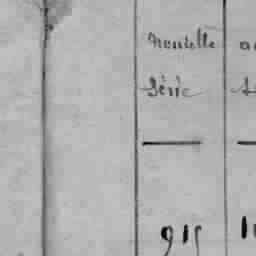 nouvelle
Série
915